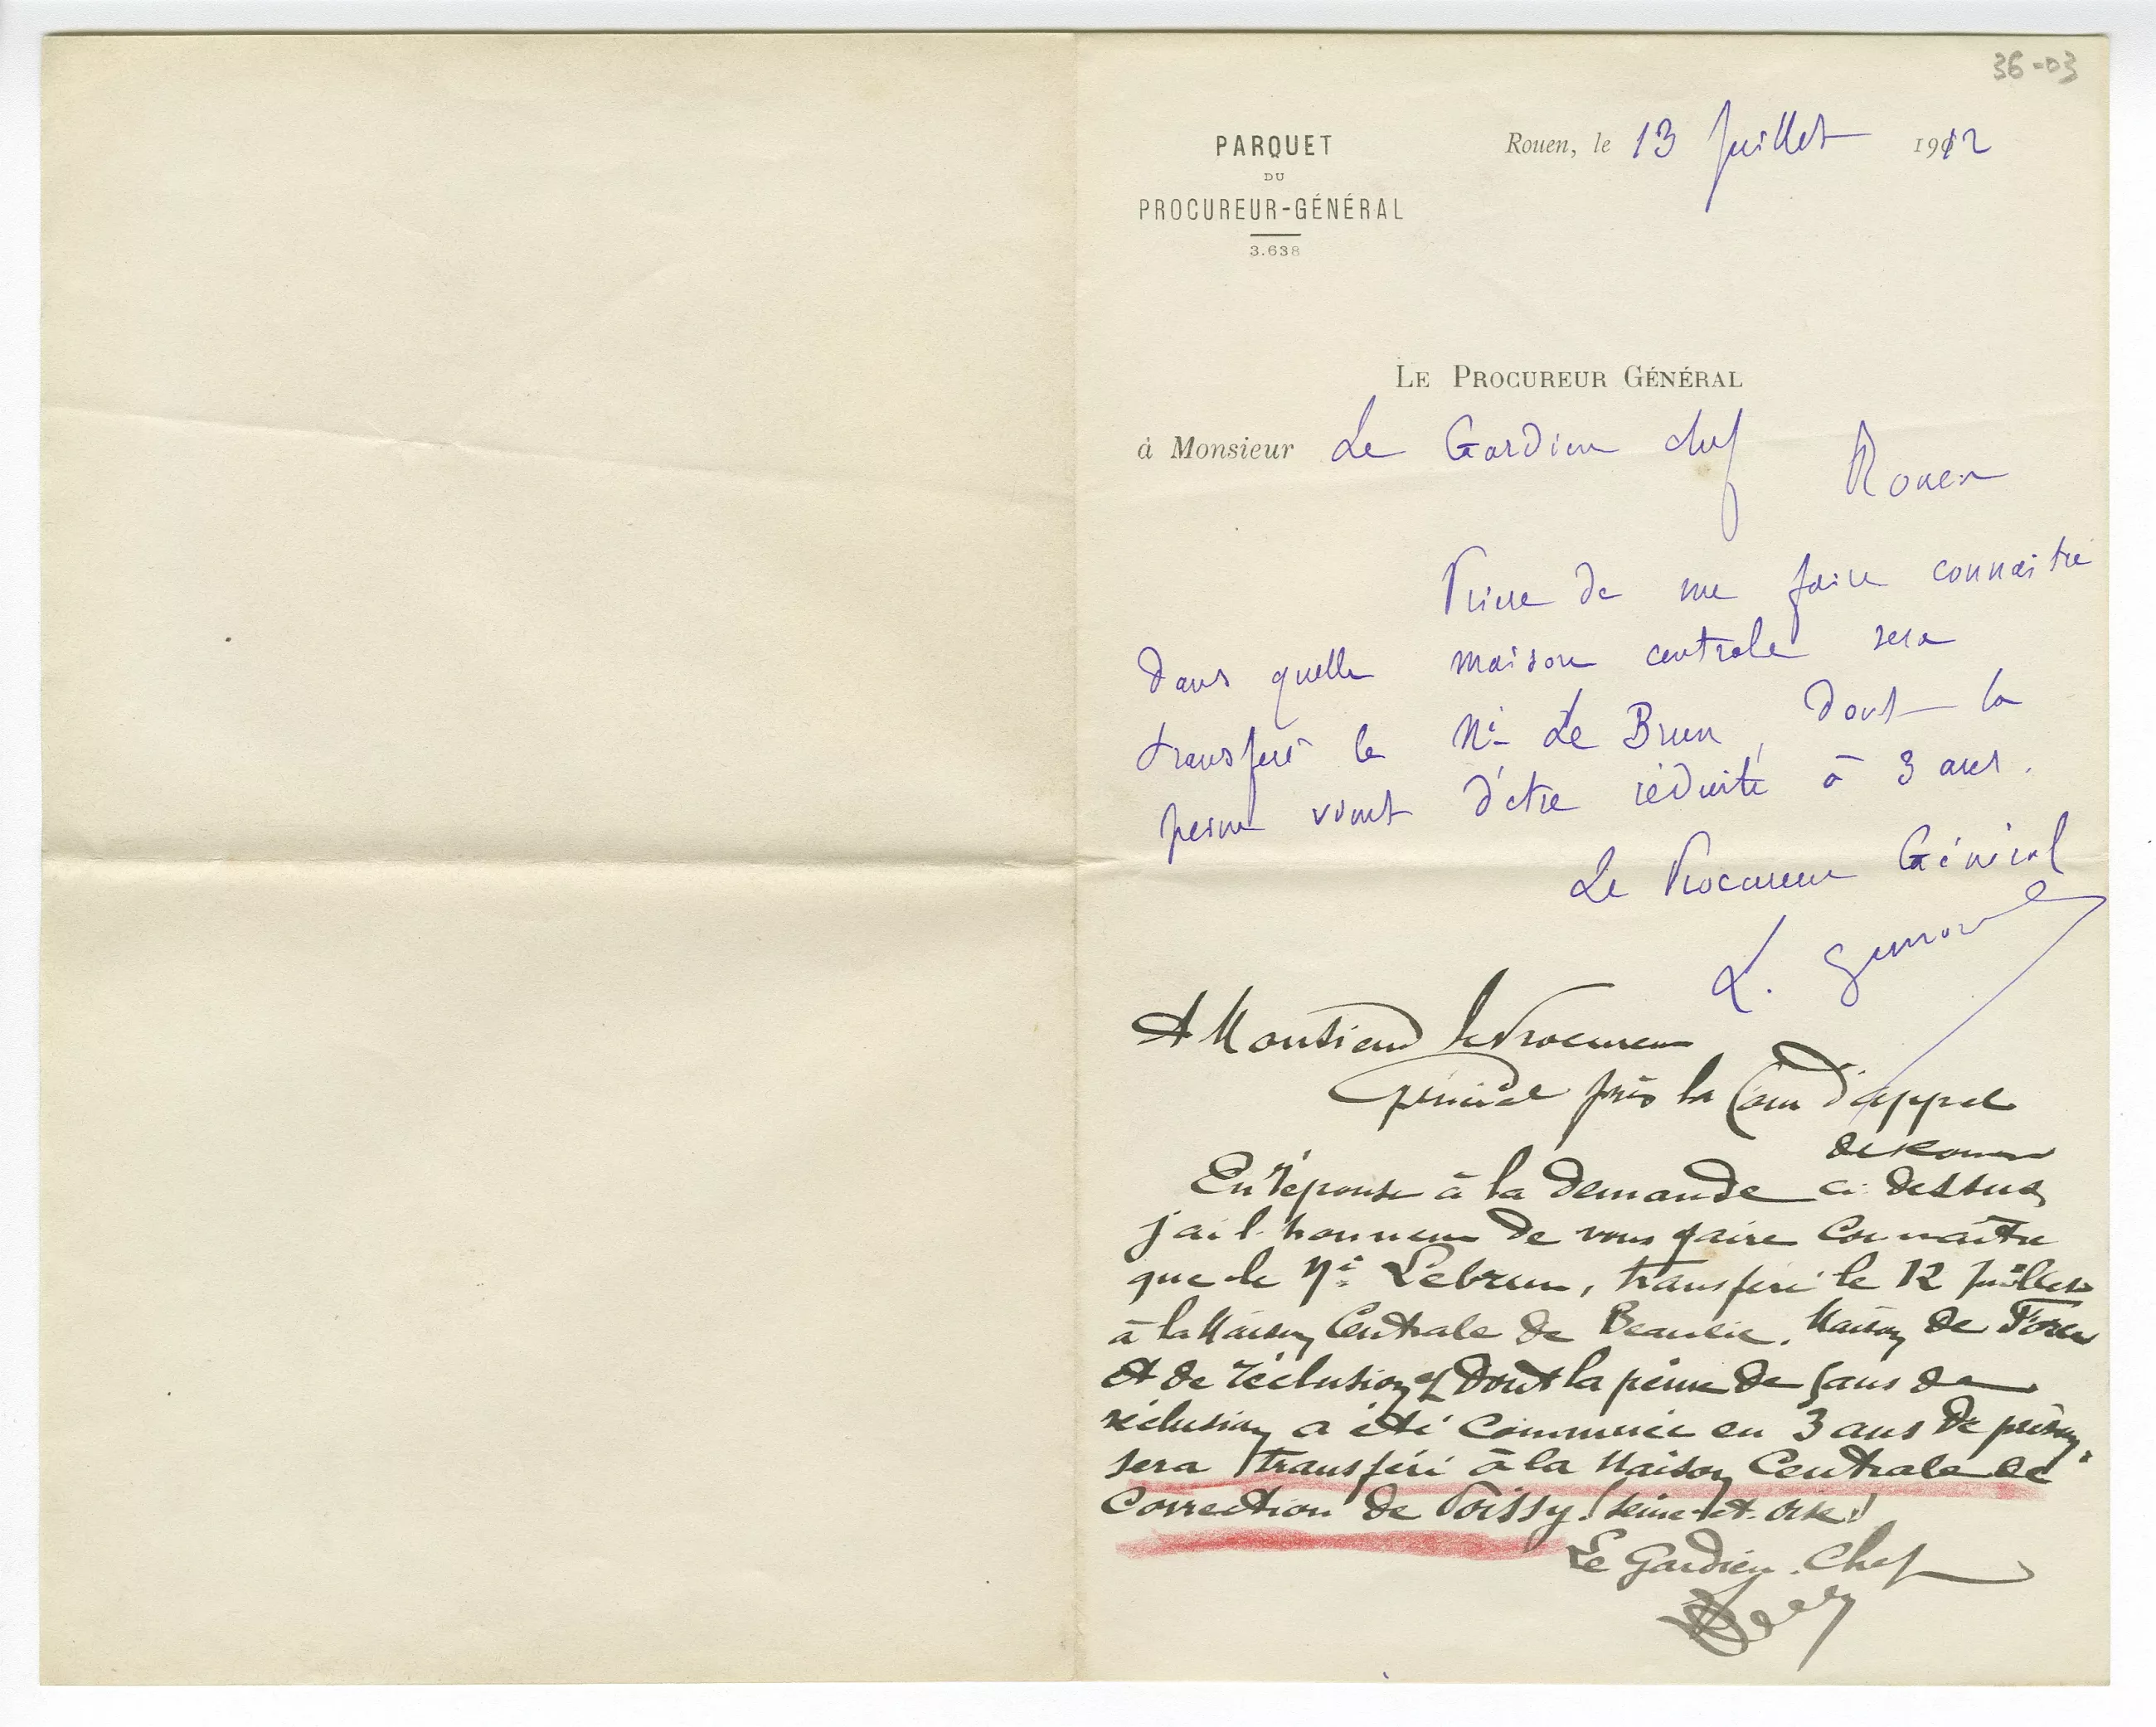 36-03
PARQUET
DU
PROCUREUR-GÉNÉRAL
3.638
Rouen, le 13 Juillet 1912
LE PROCUREUR GÉNÉRAL
à Monsieur Le Gardien chef
Rouen
Prière de me faire connaitre
dans quelle maison centrale sera
transféré le Né Le Brun, dont la
peine vient d'être réduite à 3 ans.
Le Procureur Général
A Monsieur le Procureur
Général près la Cour d'appel
de Rouen
En réponse à la demande ci-dessus
j'ai l'honneur de vous faire connaître
que le Né Lebrun, transféré le 12 juillet
à la Maison Centrale de Beaulieu. Maison de Force
et de réclusion et dont la peine de 5 ans de
réclusion a été commuée en 3 ans de prison,
sera transféré à la Maison Centrale de
Correction de Poissy. (Seine-et-Oise)
Le Gardien. Chef